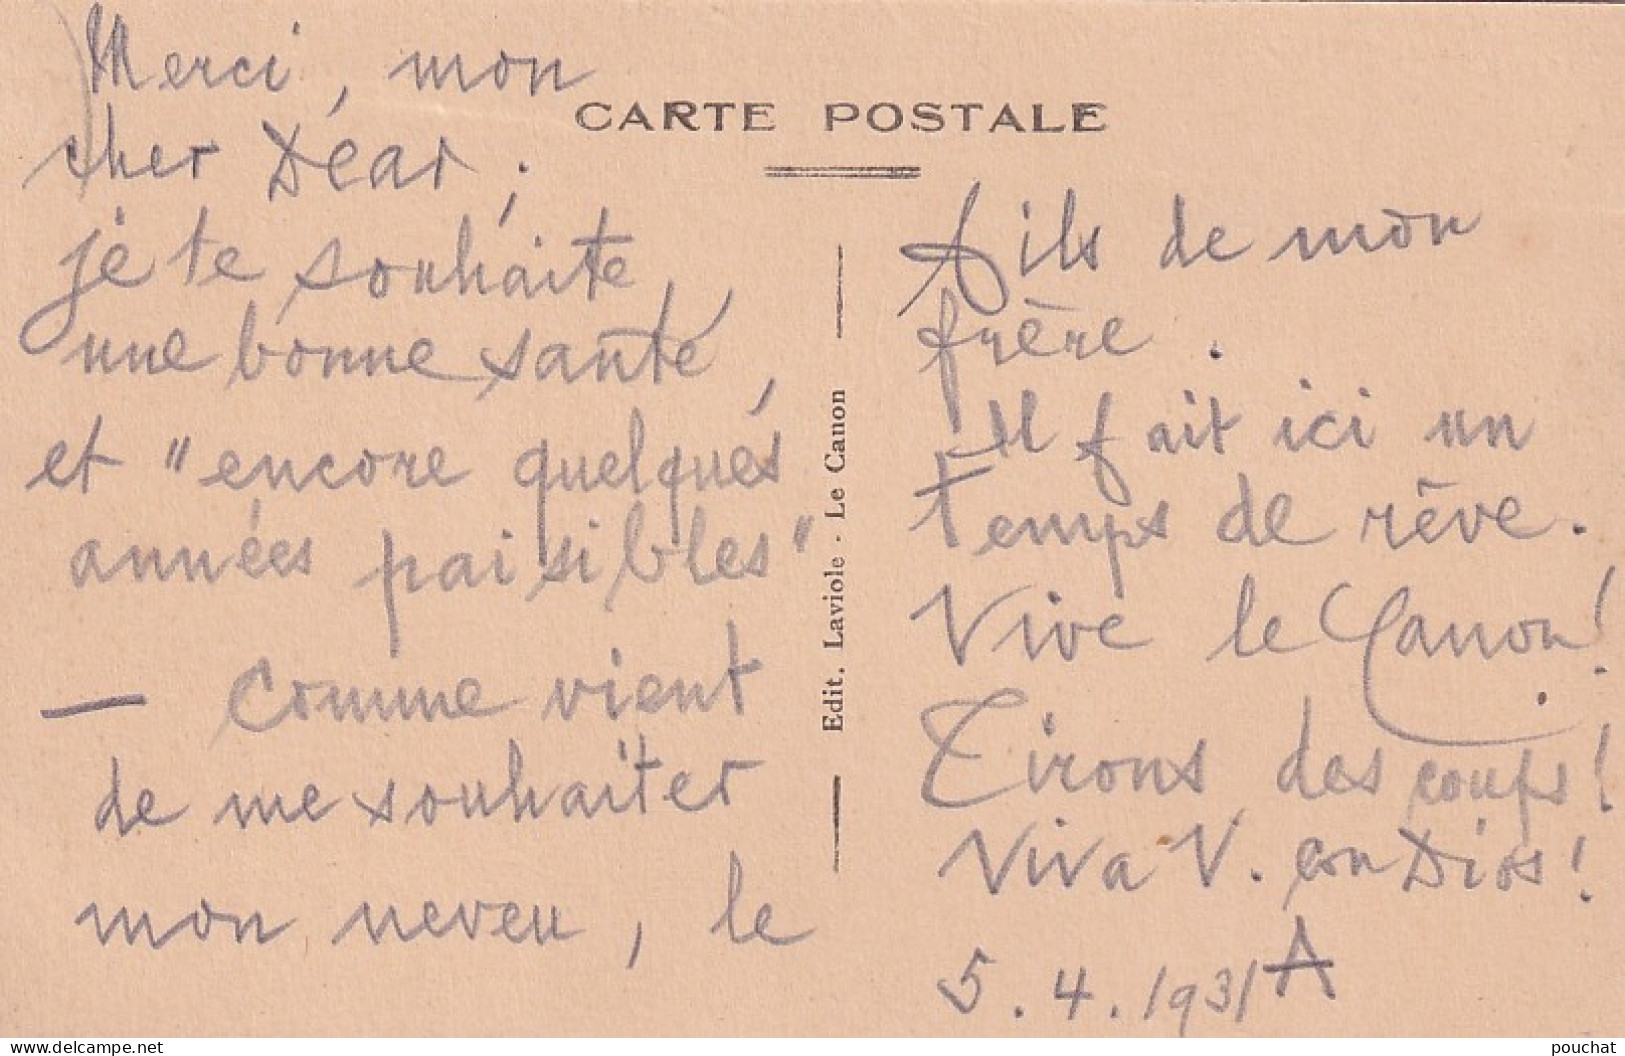 CARTE POSTALE
Merci, mon
cher Dear ;
je te souhaite,
une bonne santé,
et "encore quelques
années paisibles"
— Comme vient
de me souhaiter
mon neveu, le
Edit. Laviole · Le Canon
fils de mon
frère.
Il fait ici un
temps de rêve.
Vive le Canon !
Tirons des coups !
Viva V. con Dios !
5.4.1931 A
delcampe.net
pouchat